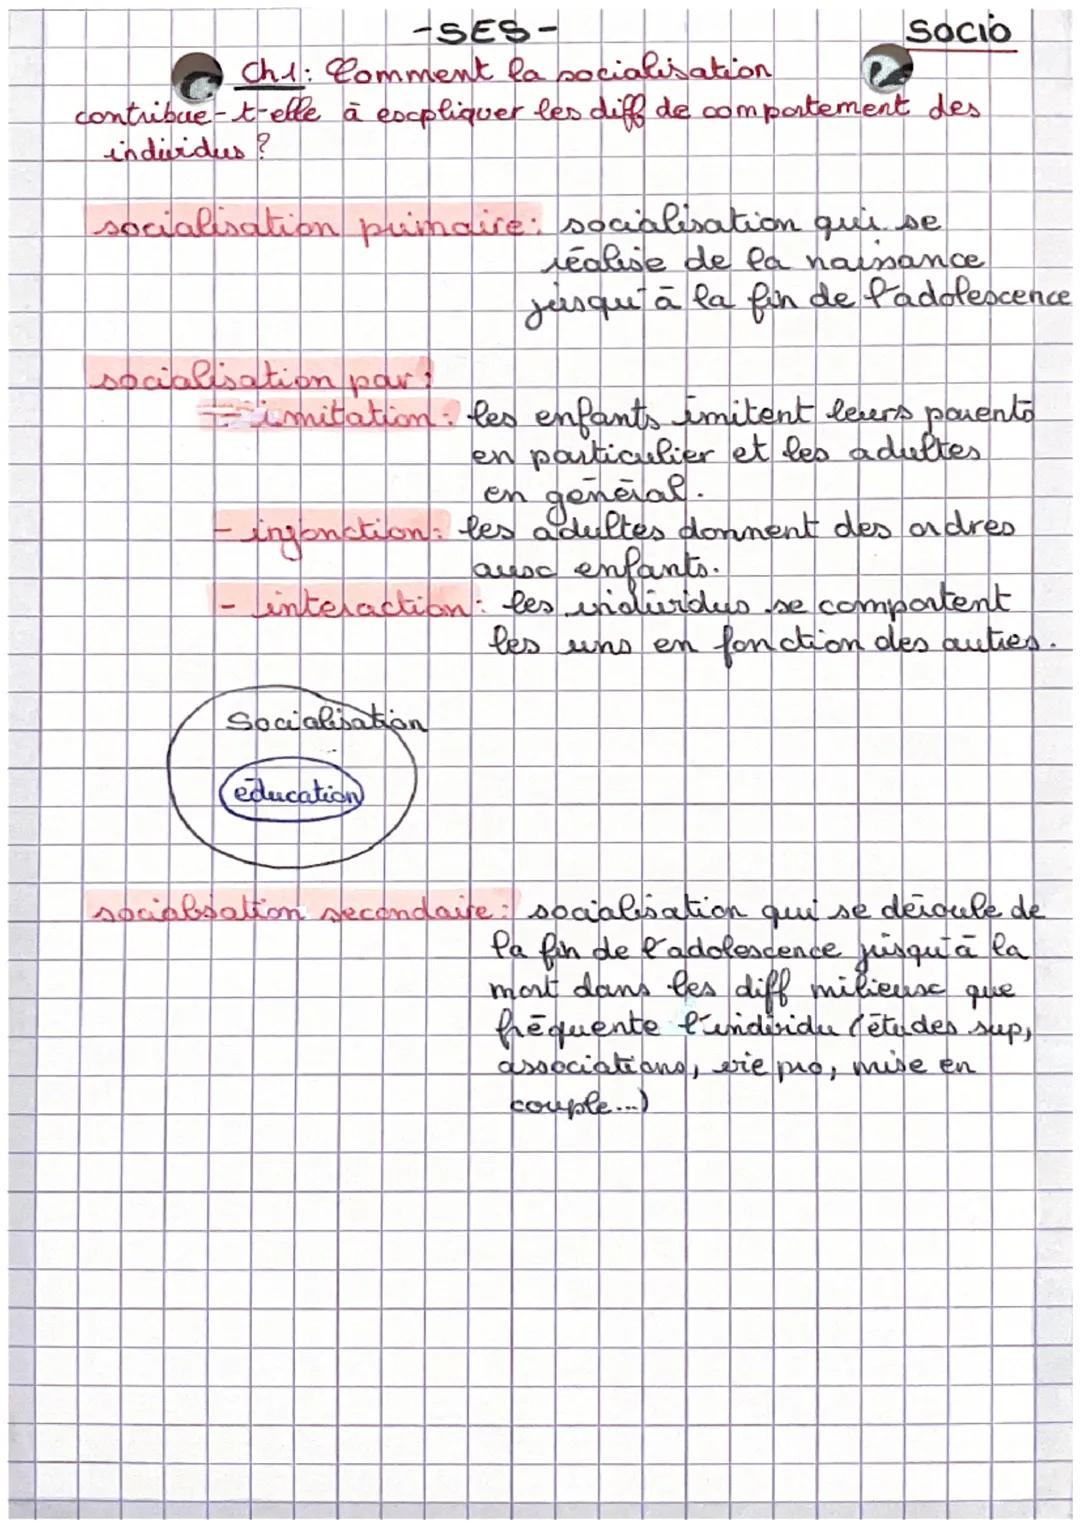 -SES-
Socio
Ch1: Comment la socialisation
contribue-t-elle à expliquer les diff de comportement des
individus ?
socialisation primaire: socialisation qui se
réalise de la naissance
jusqu'à la fin de l'adolescence
socialisation par:
- imitation: les enfants imitent leurs parents
en particulier et les adultes
en général.
- injonction: les adultes donnent des ordres
aux enfants.
- interaction: les individus se comportent
les uns en fonction des autres.
Socialisation
éducation
socialisation secondaire: socialisation qui se déroule de
la fin de l'adolescence jusqu'à la
mort dans les diff milieux que
fréquente l'individu (études sup,
associations, vie pro, mise en
couple...)